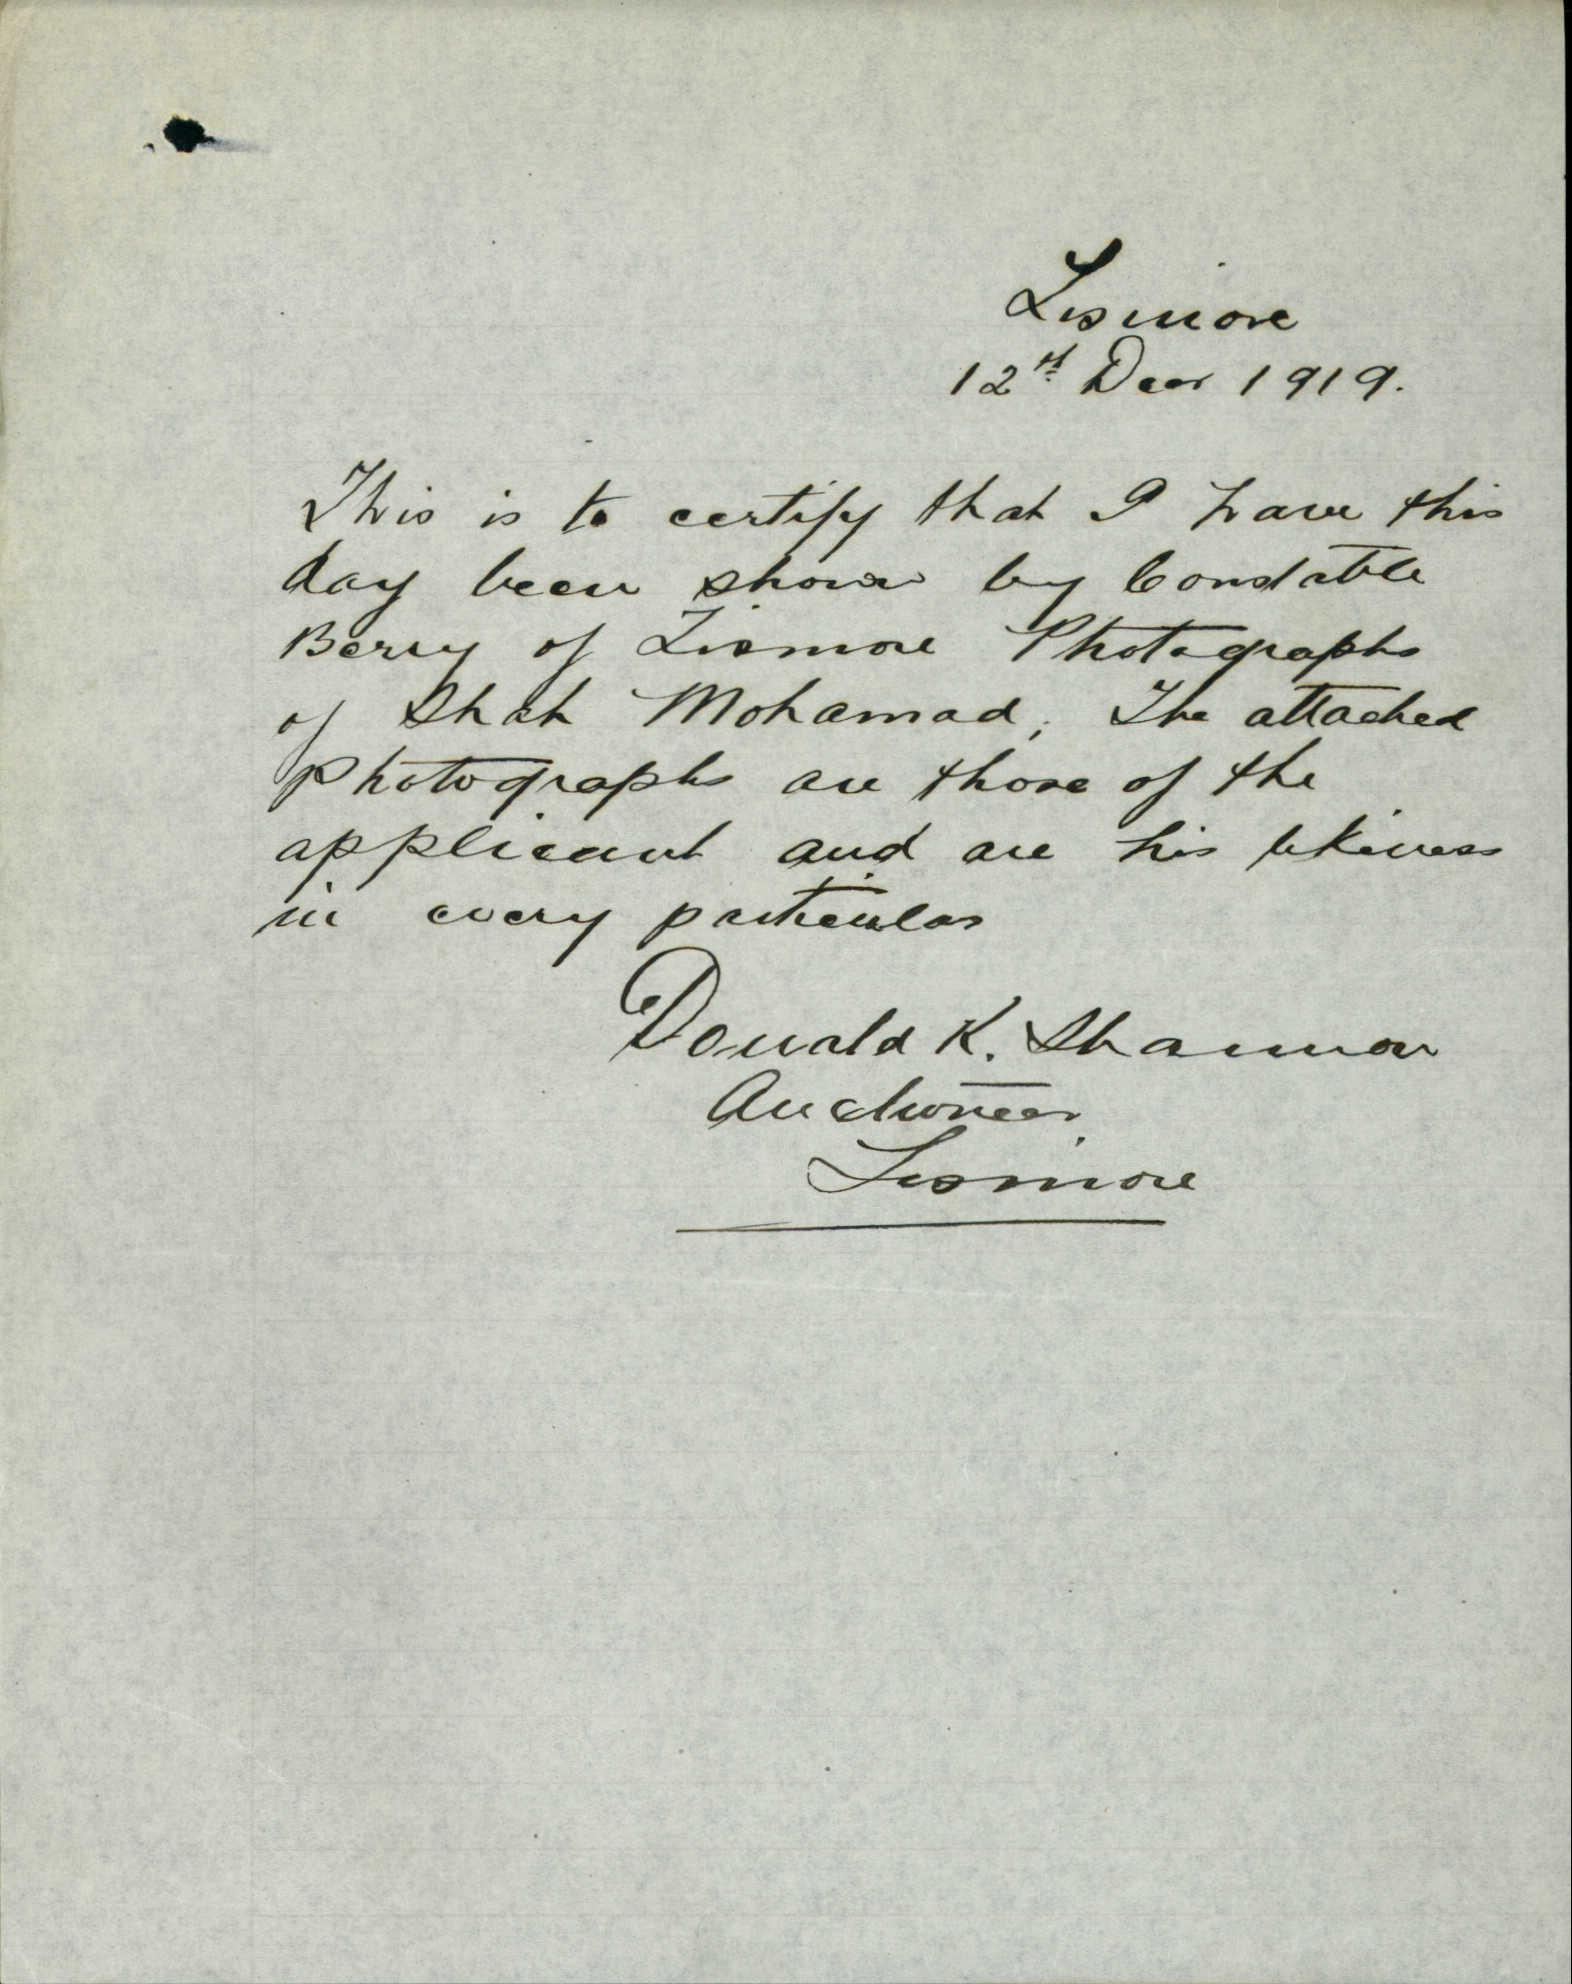 Lismore
12th Decr 1919.
This is to certify that I have this
day been shown by Constable
Berry of Lismore Photographs
of Shah Mohamad, The attached
Photographs are those of the
applicant and are his likeness
in every particular
Donald K. Shannon
Auctioneer
Lismore